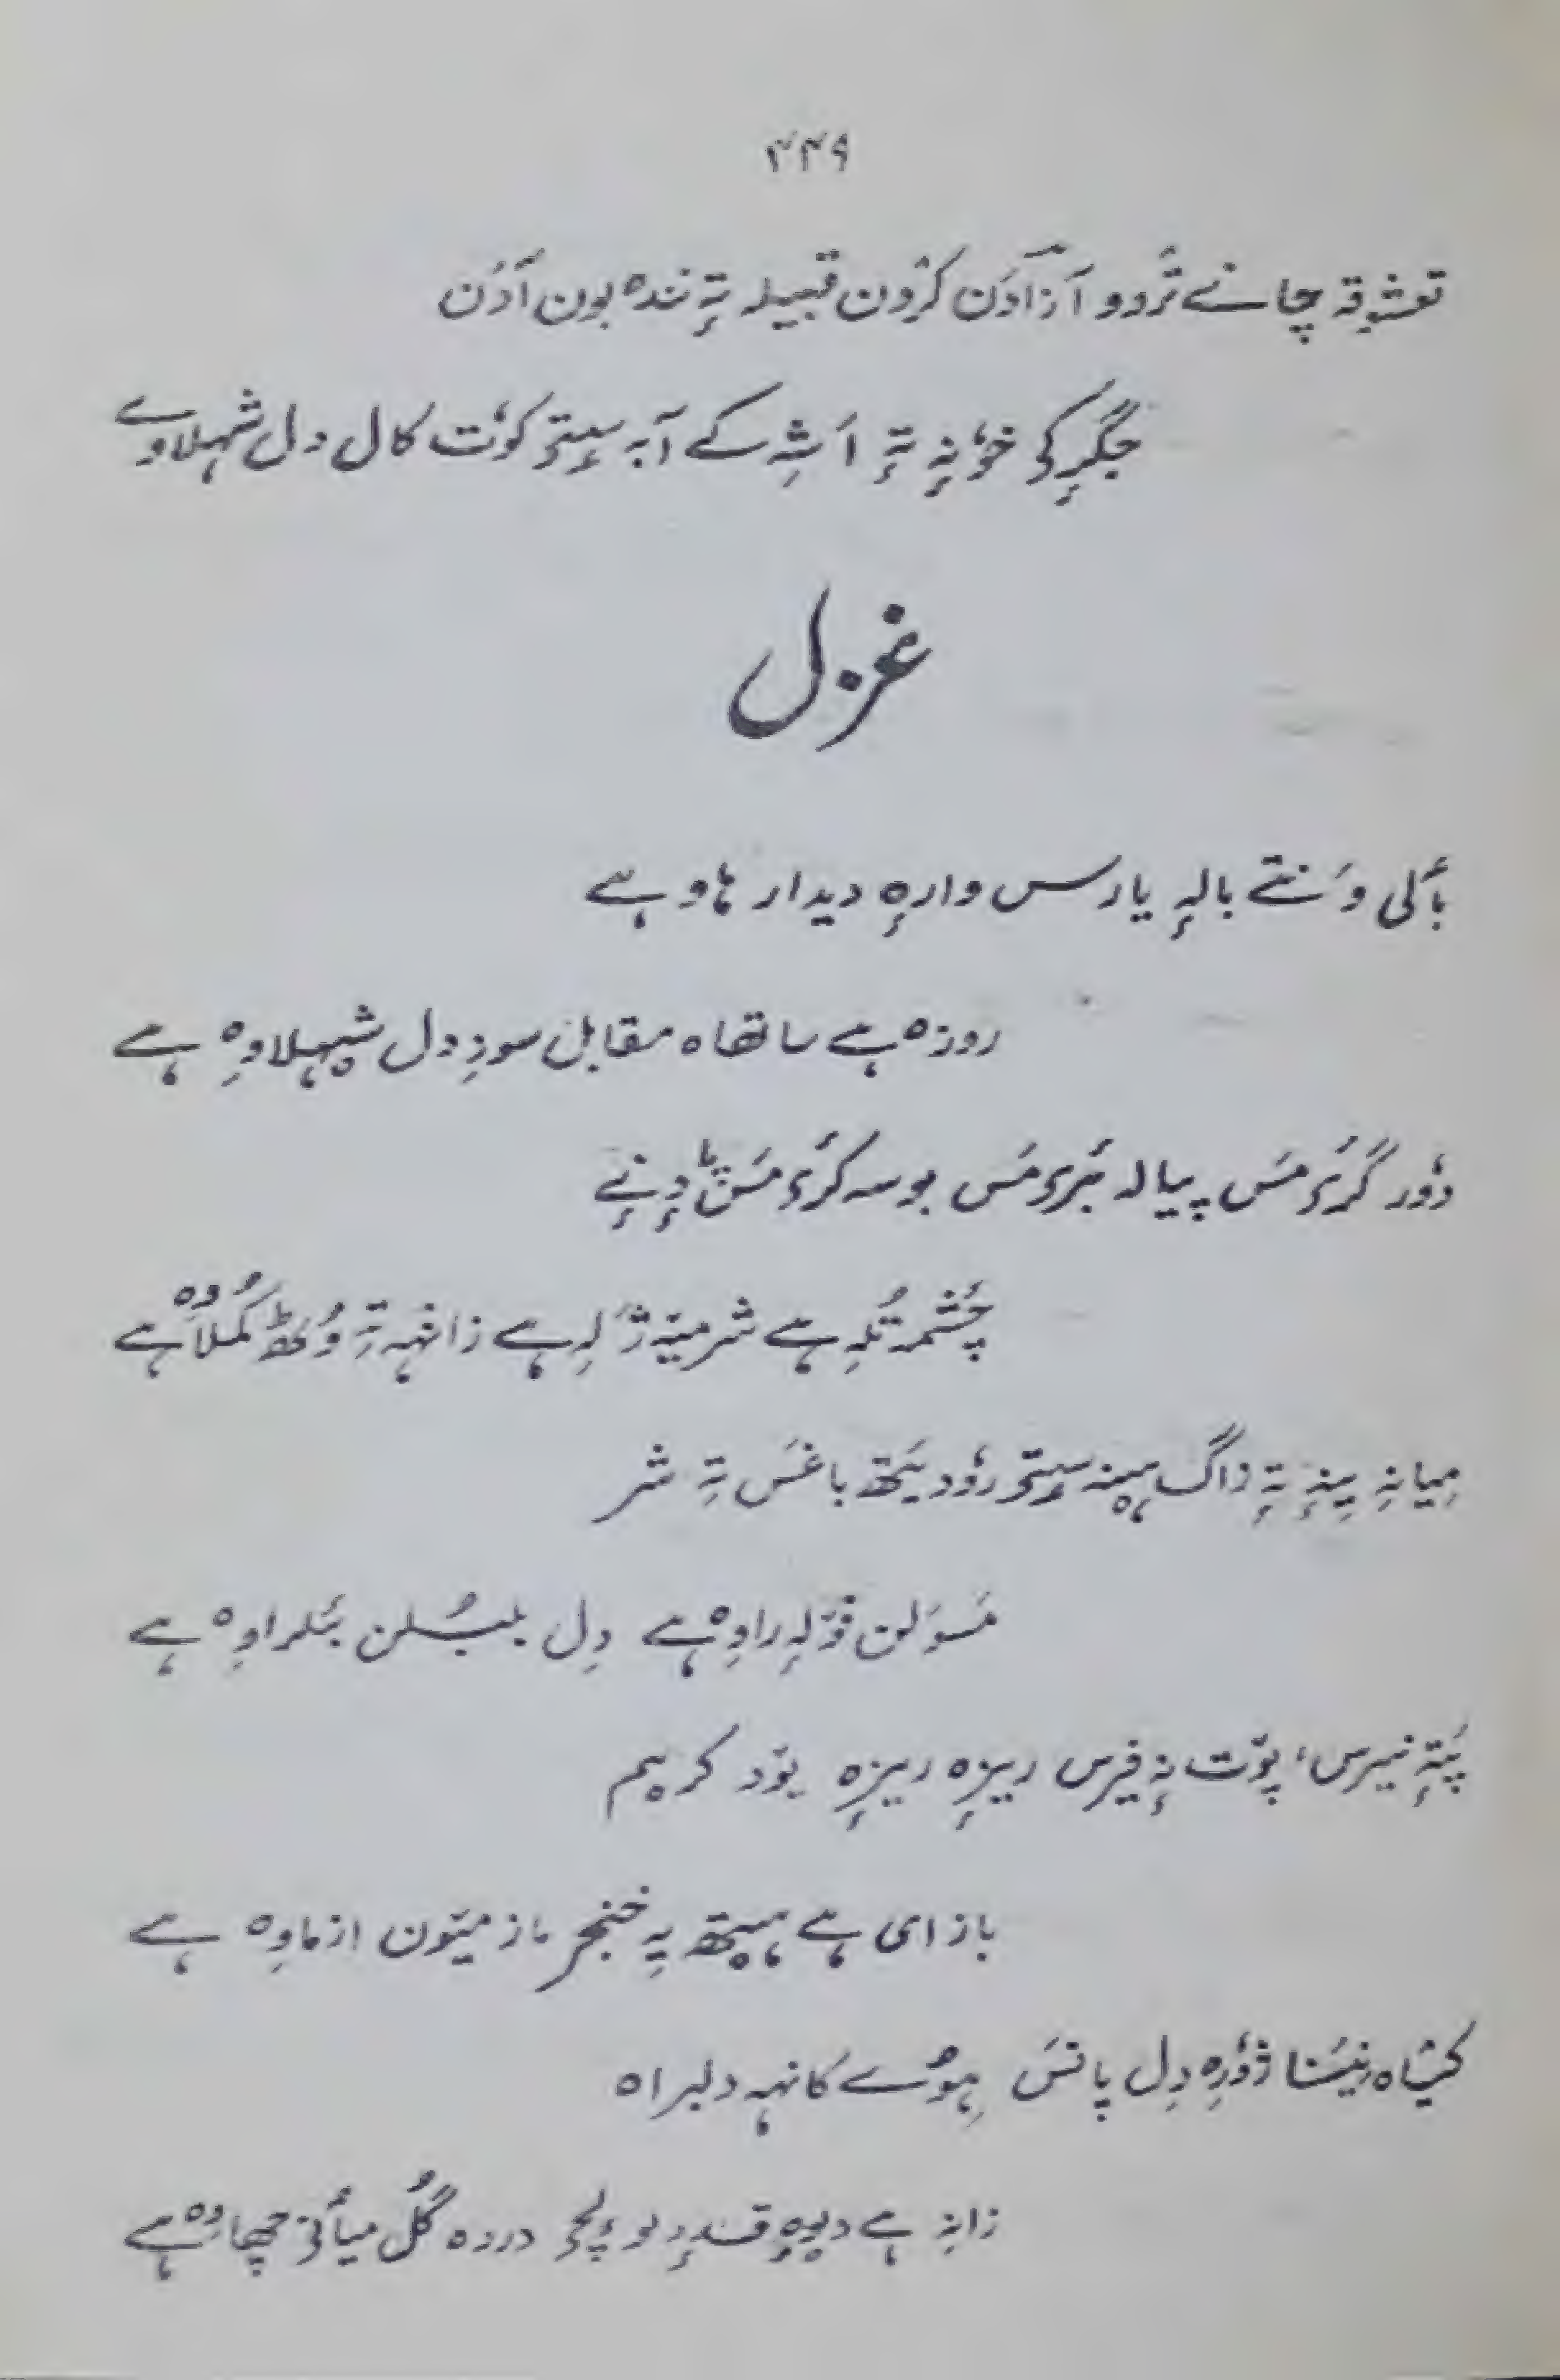 ۴۴۹
تعشقہ چانے تَردو آزادَن کرٛون قبیلہ تہٕ ندہ بون آدَن
جگرٕکی خوٗنہٕ تہٕ اَشہِ کے آبہ سٟتۍ کوٗت کال دل شہلاوے
غزل
بٲلی وَنتے بالہٕ یارس وارہٕ دیدار ہاو ہے
روزہ ہے ساتھاہ مقابل سوزِ دل شیہلاوِہ ہے
دوٗر گٔرۍ مَس پیالہ بٔرۍ مَس بوسہ کٔرۍ مَس دِنے
چشمہ تُلہِ ہے شرمہٕ ژَلہِ ہے زانٛہہ تہِ وُٹھ کُملاوِہ ہے
میانہِ ینہٕ تہٕ زاگ ہینہ سٟتۍ روٗدیَتھ باغَس تہِ شر
مَسوَلن ژٕلہٕ راوِہ ہے دِل بلبُلن بٔلراوِہ ہے
پَتہٕ نیرس، پوٚت نہٕ فیرس ریزہٕ ریزہٕ یوٚد کریم
باز ای ہے ہیتھ یہِ خنجر ماز میٚون ازماوِہ ہے
کیٛاہ بنیَنا ژوٗرِہ دِل پانَس ہِوُے کانہہ دلبراہ
زانہِ ہے دیہٕ قندٕ لولٕچۍ دردہ گُل میٲنۍ چھاوِہ ہے